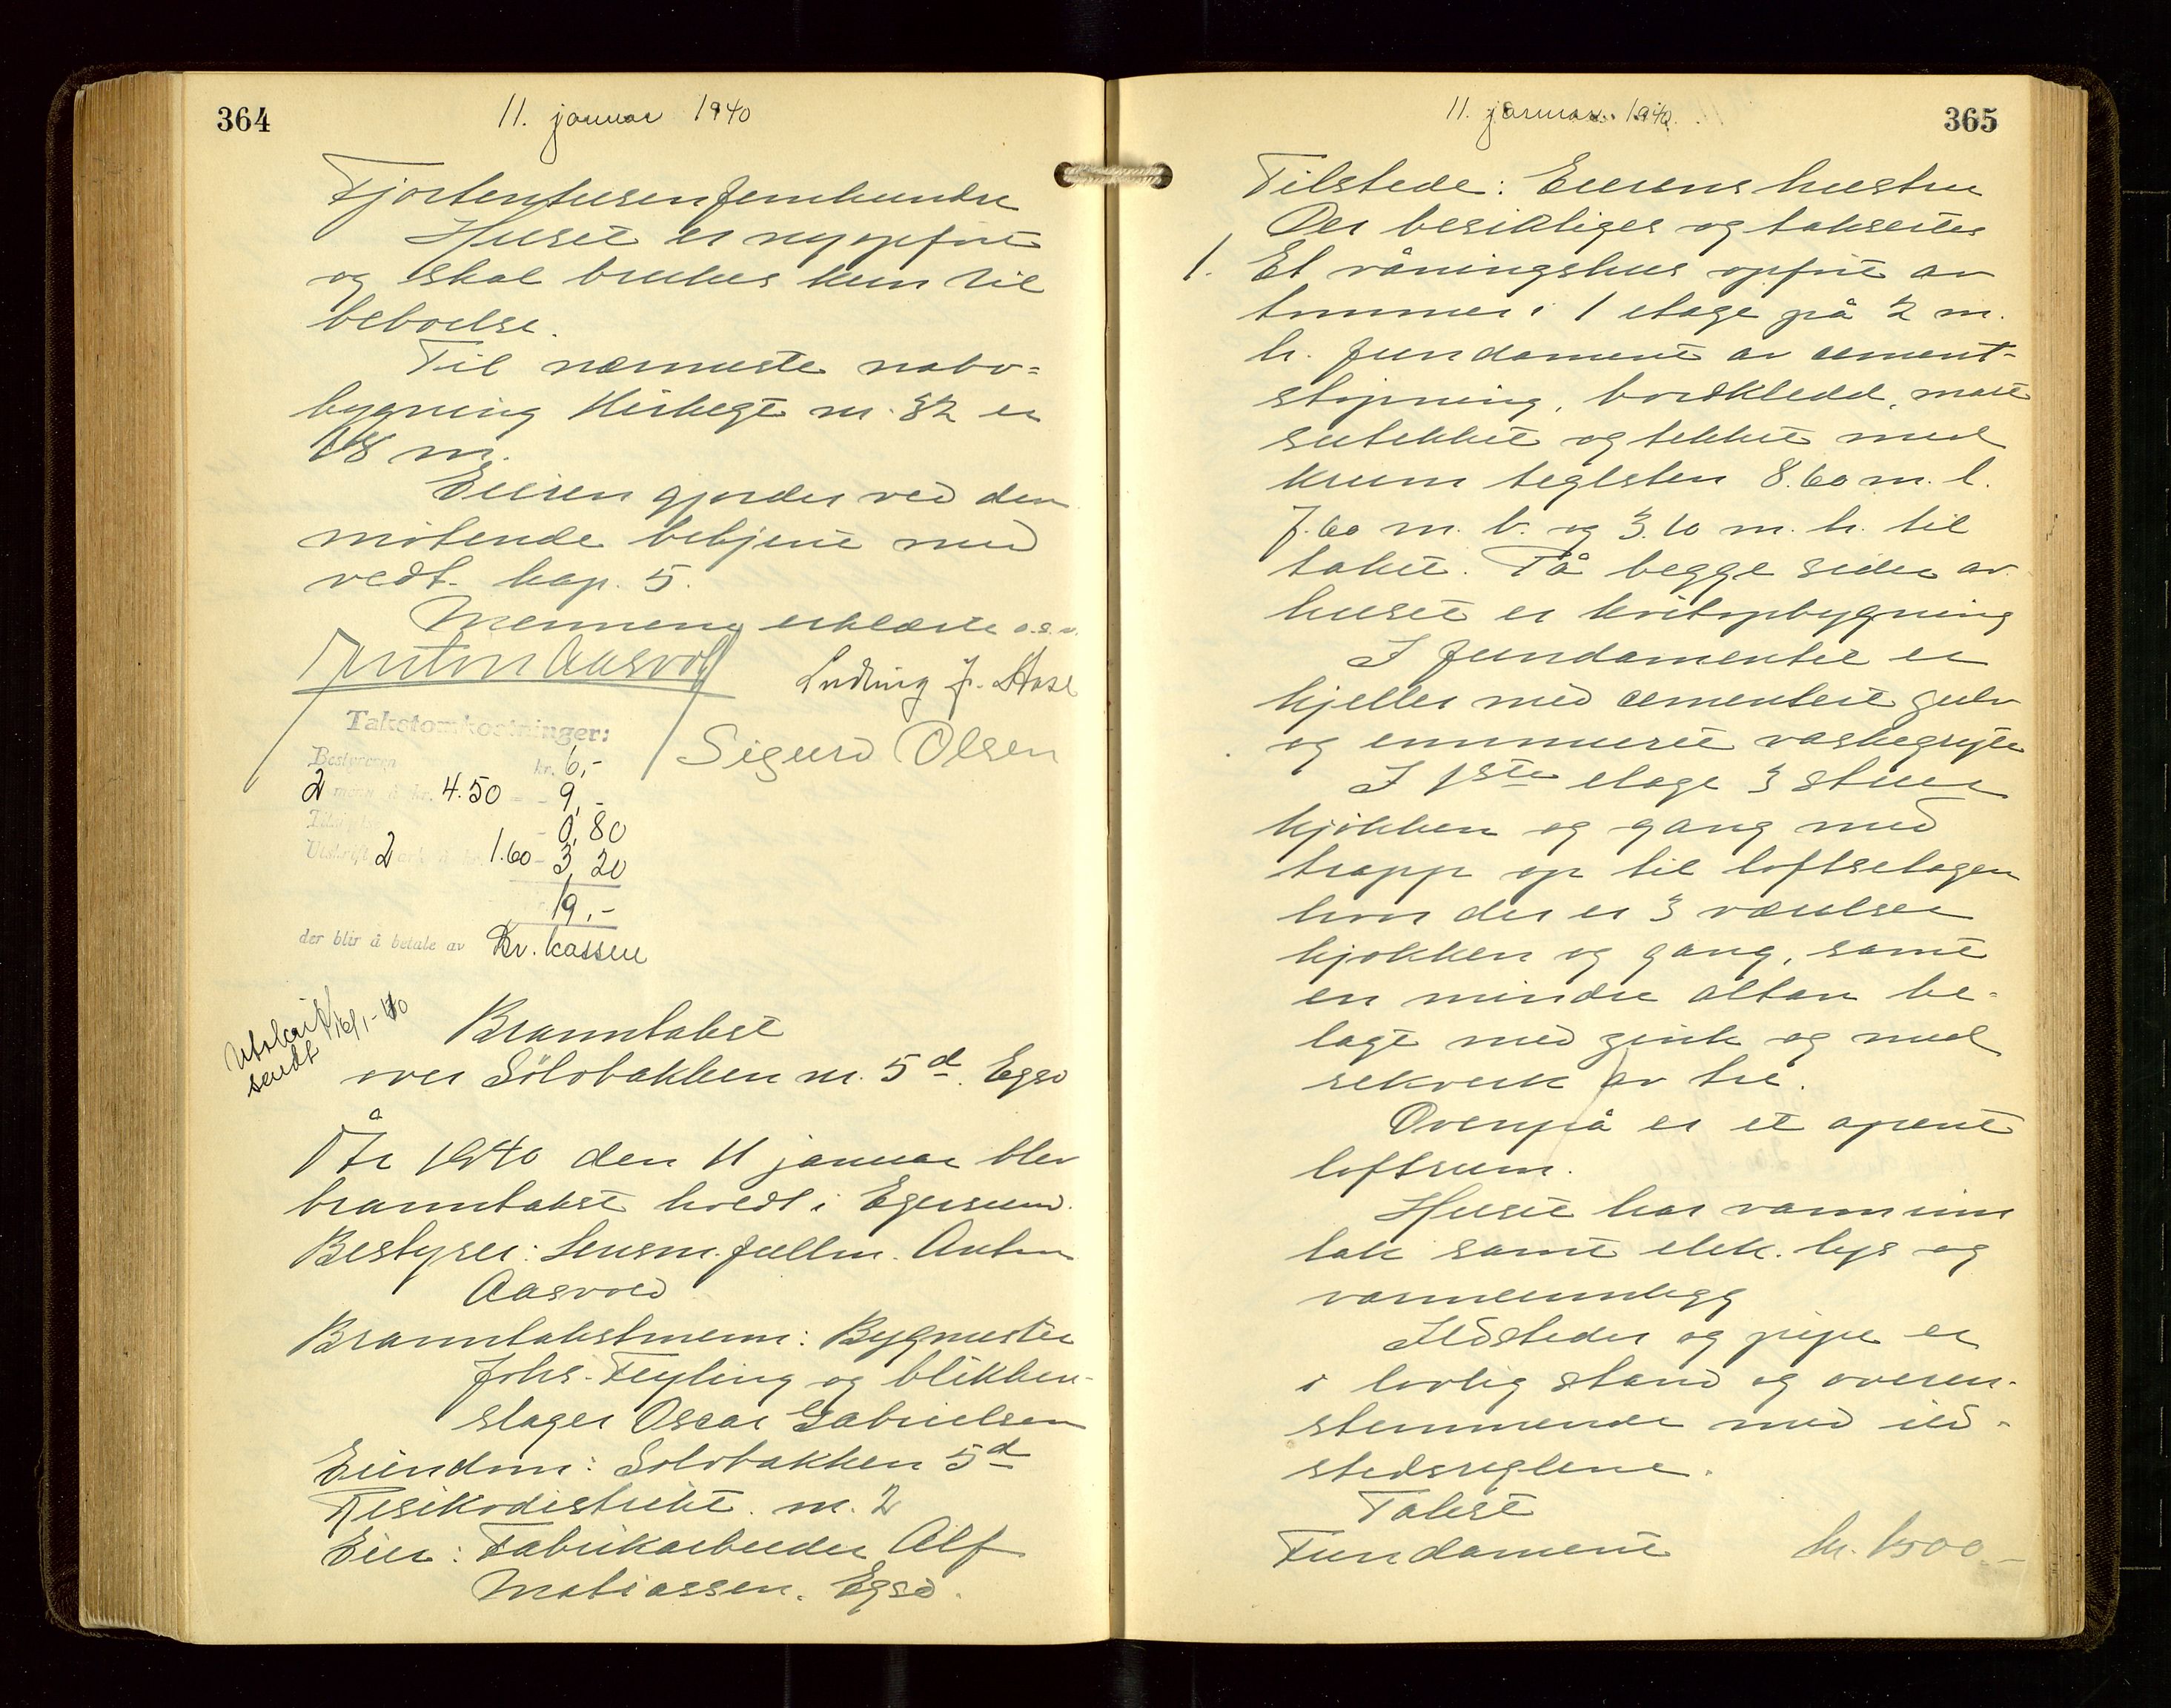 364
11. januar 1940
Fjortentusenfemhundre
Huset er nyopført
og skal brukes kun til
beboelse.
Til nærmeste nabo=
bygning Kirkegt nr. 32 er
18 m.
Eieren gjordes ved den
møtende bekjent med
vedt. kap. 5.
Mennene erklærte o.s.v.
Anton Aasvold
Ludvig J. Hase
Sigurd Olsen
Takstomkostninger:
Bestyreren kr. 6,-
2 menn à kr. 4.50 = - 9,-
- 0,80
Utskrift 2 ark à kr. 1.60 - 3,20
19,-
der blir å betale av Br. kassen
Utskrift sendt 16/1-40
Branntakst
over Sølvbakken nr. 5d. Egsd
År 1940 den 11 januar blev
branntakst holdt i Egersund.
Bestyrer: Lensm. fullm. Anton
Aasvold
Branntakstmenn: Bygmester
Johs. Feyling og blikken-
slager Oscar Gabrielsen
Eiendom: Sølvbakken 5d
Risikodistrikt nr. 2
Eier: Fabrikarbeider Alf
Matiassen. Egsd.
11. januar 1940.
365
Tilstede: Eierens hustru
Der besiktiges og taksertes
1. Et våningshus opført av
tømmer i 1 etage på 2 m.
h. fundament av cement-
støpning, bordkledd, malt
sutekket og tekket med
krum teglsten 8.60 m. l.
7.60 m. b. og 3.10 m. h. til
taket. På begge sider av
huset er kvistopbygning
I fundamentet er
kjeller med cementert gulv
og innmuret vaskegryte
I 1ste etage 3 stuer
kjøkken og gang med
trapp op til loftsetagen
hvor der er 3 værelser
kjøkken og gang, samt
en mindre altan be-
lagt med zink og med
rekverk av tre.
Ovenpå er et åpent
loftsrum.
Huset har vanninn
tak samt elek. lys og
varmeinnlegg
Ildsteder og pipe er
i lovlig stand og overen-
stemmende med ild-
stedsreglene.
Takst
Fundament kr. 1500.-